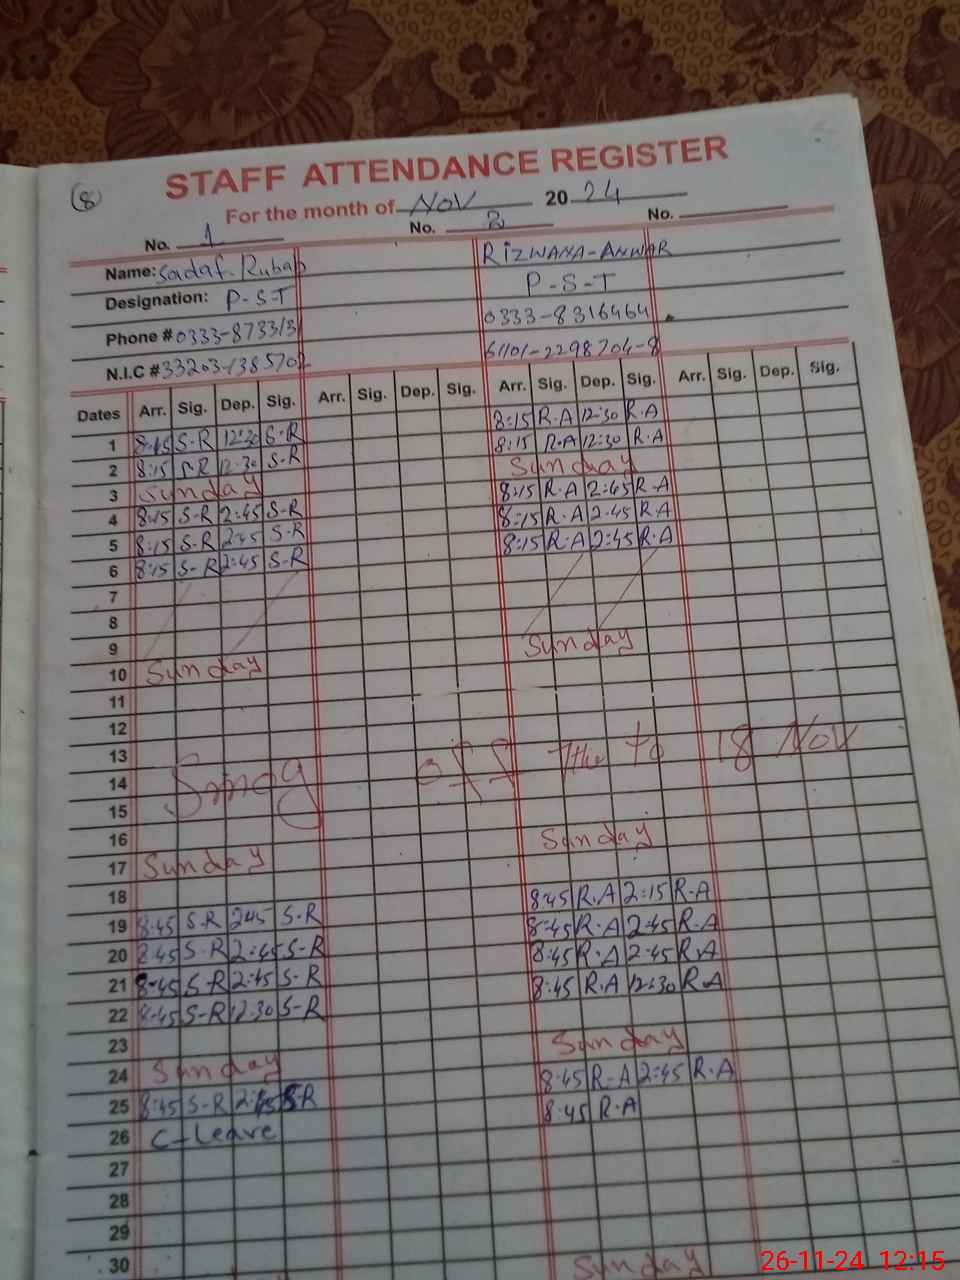 8
STAFF ATTENDANCE REGISTER
For the month of Nov 2024
No. 1 No. 2 No.
Name: Sadaf-Rubab RIZWANA-ANWAR
Designation: P-S-T P-S-T
Phone # 0333-873313 0333-8316464
N.I.C # 33203-1385702 61101-2298704-8
Dates Arr. Sig. Dep. Sig. Arr. Sig. Dep. Sig. Arr. Sig. Dep. Sig. Arr. Sig. Dep. Sig.
1 8:15 S-R 12:30 S-R 8:15 R.A 12:30 R.A
2 8:15 S-R 12:30 S-R 8:15 R.A 12:30 R.A
3 Sunday Sunday
4 8:15 S-R 2:45 S-R 8:15 R.A 2:45 R.A
5 8:15 S-R 2:45 S-R 8:15 R.A 2:45 R.A
6 8:15 S-R 2:45 S-R 8:15 R.A 2:45 R.A
7
8
9
10 Sunday Sunday
11
12
13
14 Smog off The to 18 Nov
15
16
17 Sunday Sunday
18
19 8:45 S-R 2:45 S-R 8:45 R.A 2:15 R.A
20 8:45 S-R 2:45 S-R 8:45 R.A 2:45 R.A
21 8:45 S-R 2:45 S-R 8:45 R.A 2:45 R.A
22 8:45 S-R 12:30 S-R 8:45 R.A 12:30 R.A
23
24 Sunday Sunday
25 8:45 S-R 2:45 S-R 8:45 R-A 2:45 R.A
26 C-Leave 8:45 R.A
27
28
29
30 Sunday
26-11-24 12:15